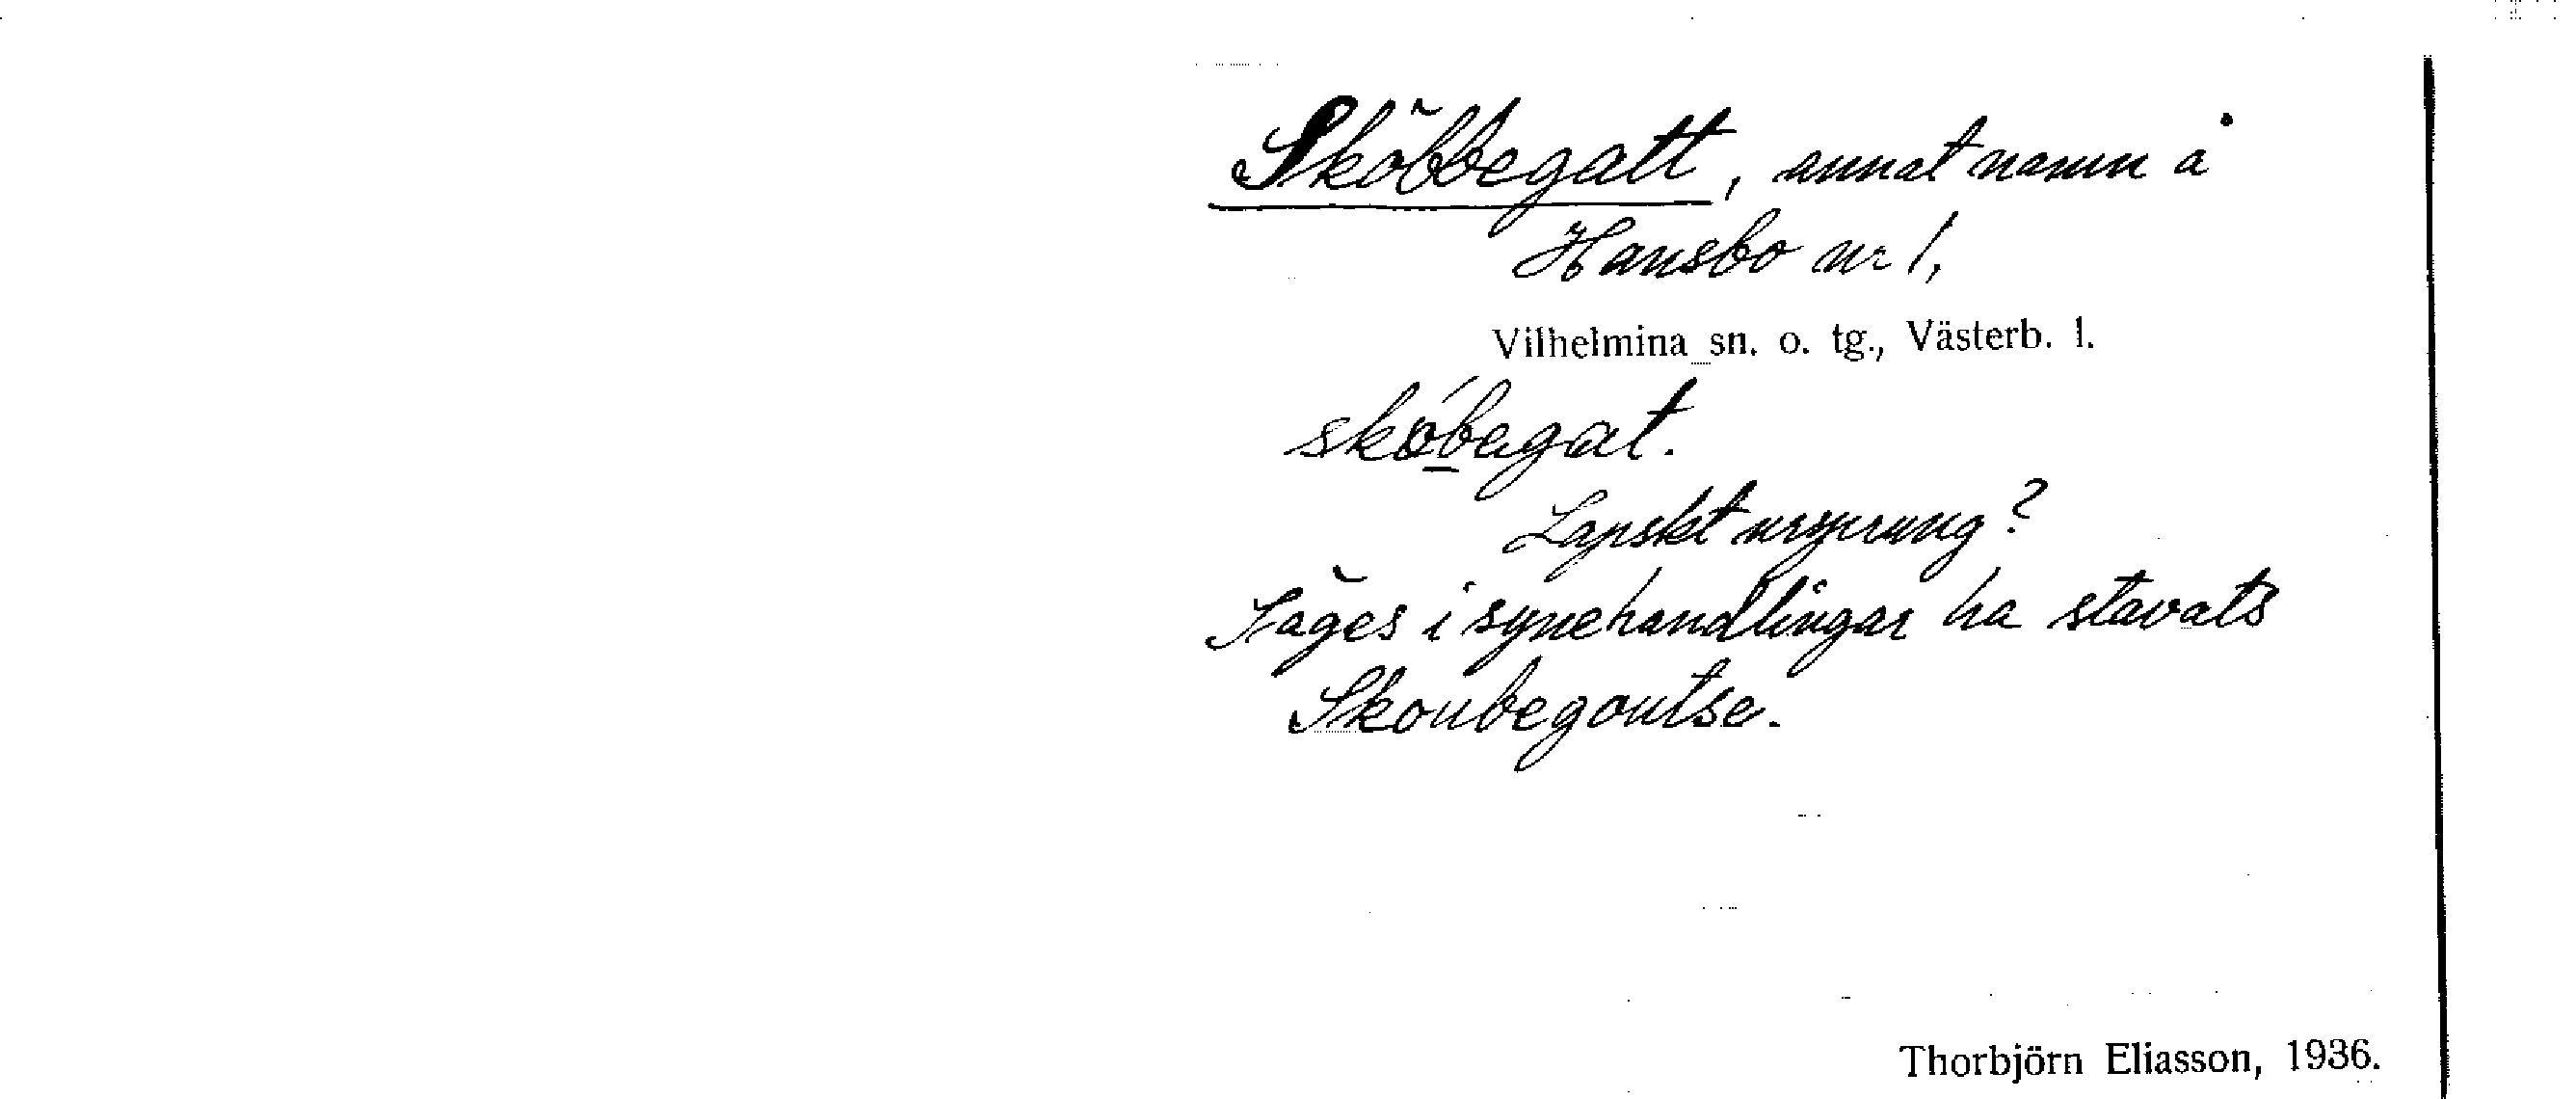 Sköbbegatt, annat namn å
Hansbo nr 1,
Vilhelmina sn. o. tg., Västerb. l.
skǿb̲egat.
Lapskt ursprung?
Säges i synehandlingar ha stavats
Skoubegoutse.
Thorbjörn Eliasson, 1936.